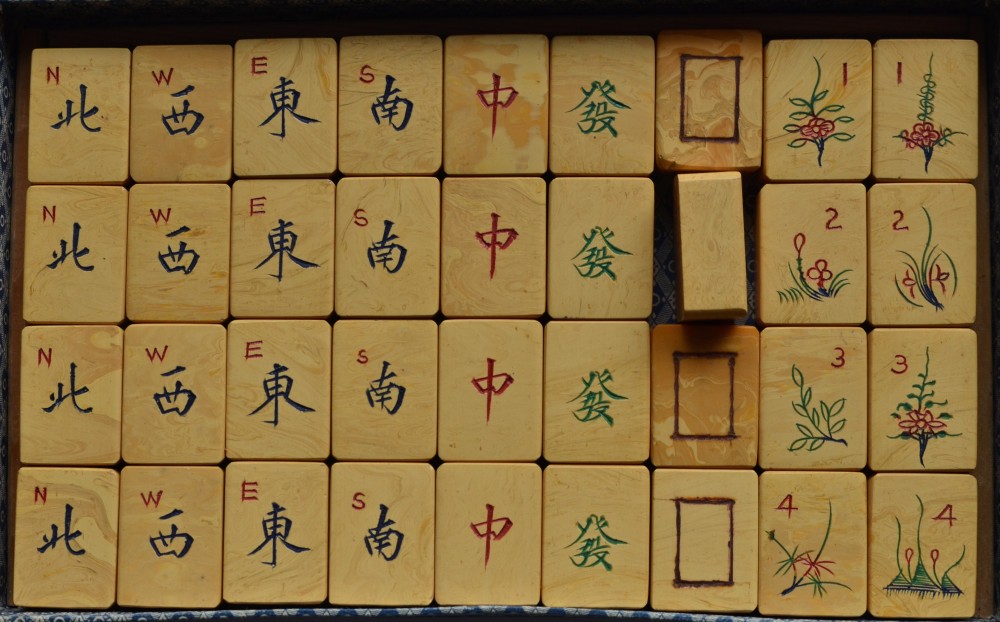 N北 W西 E東 S南 中 發 1 1
N北 W西 E東 S南 中 發 2 2
N北 W西 E東 S南 中 發 3 3
N北 W西 E東 S南 中 發 4 4